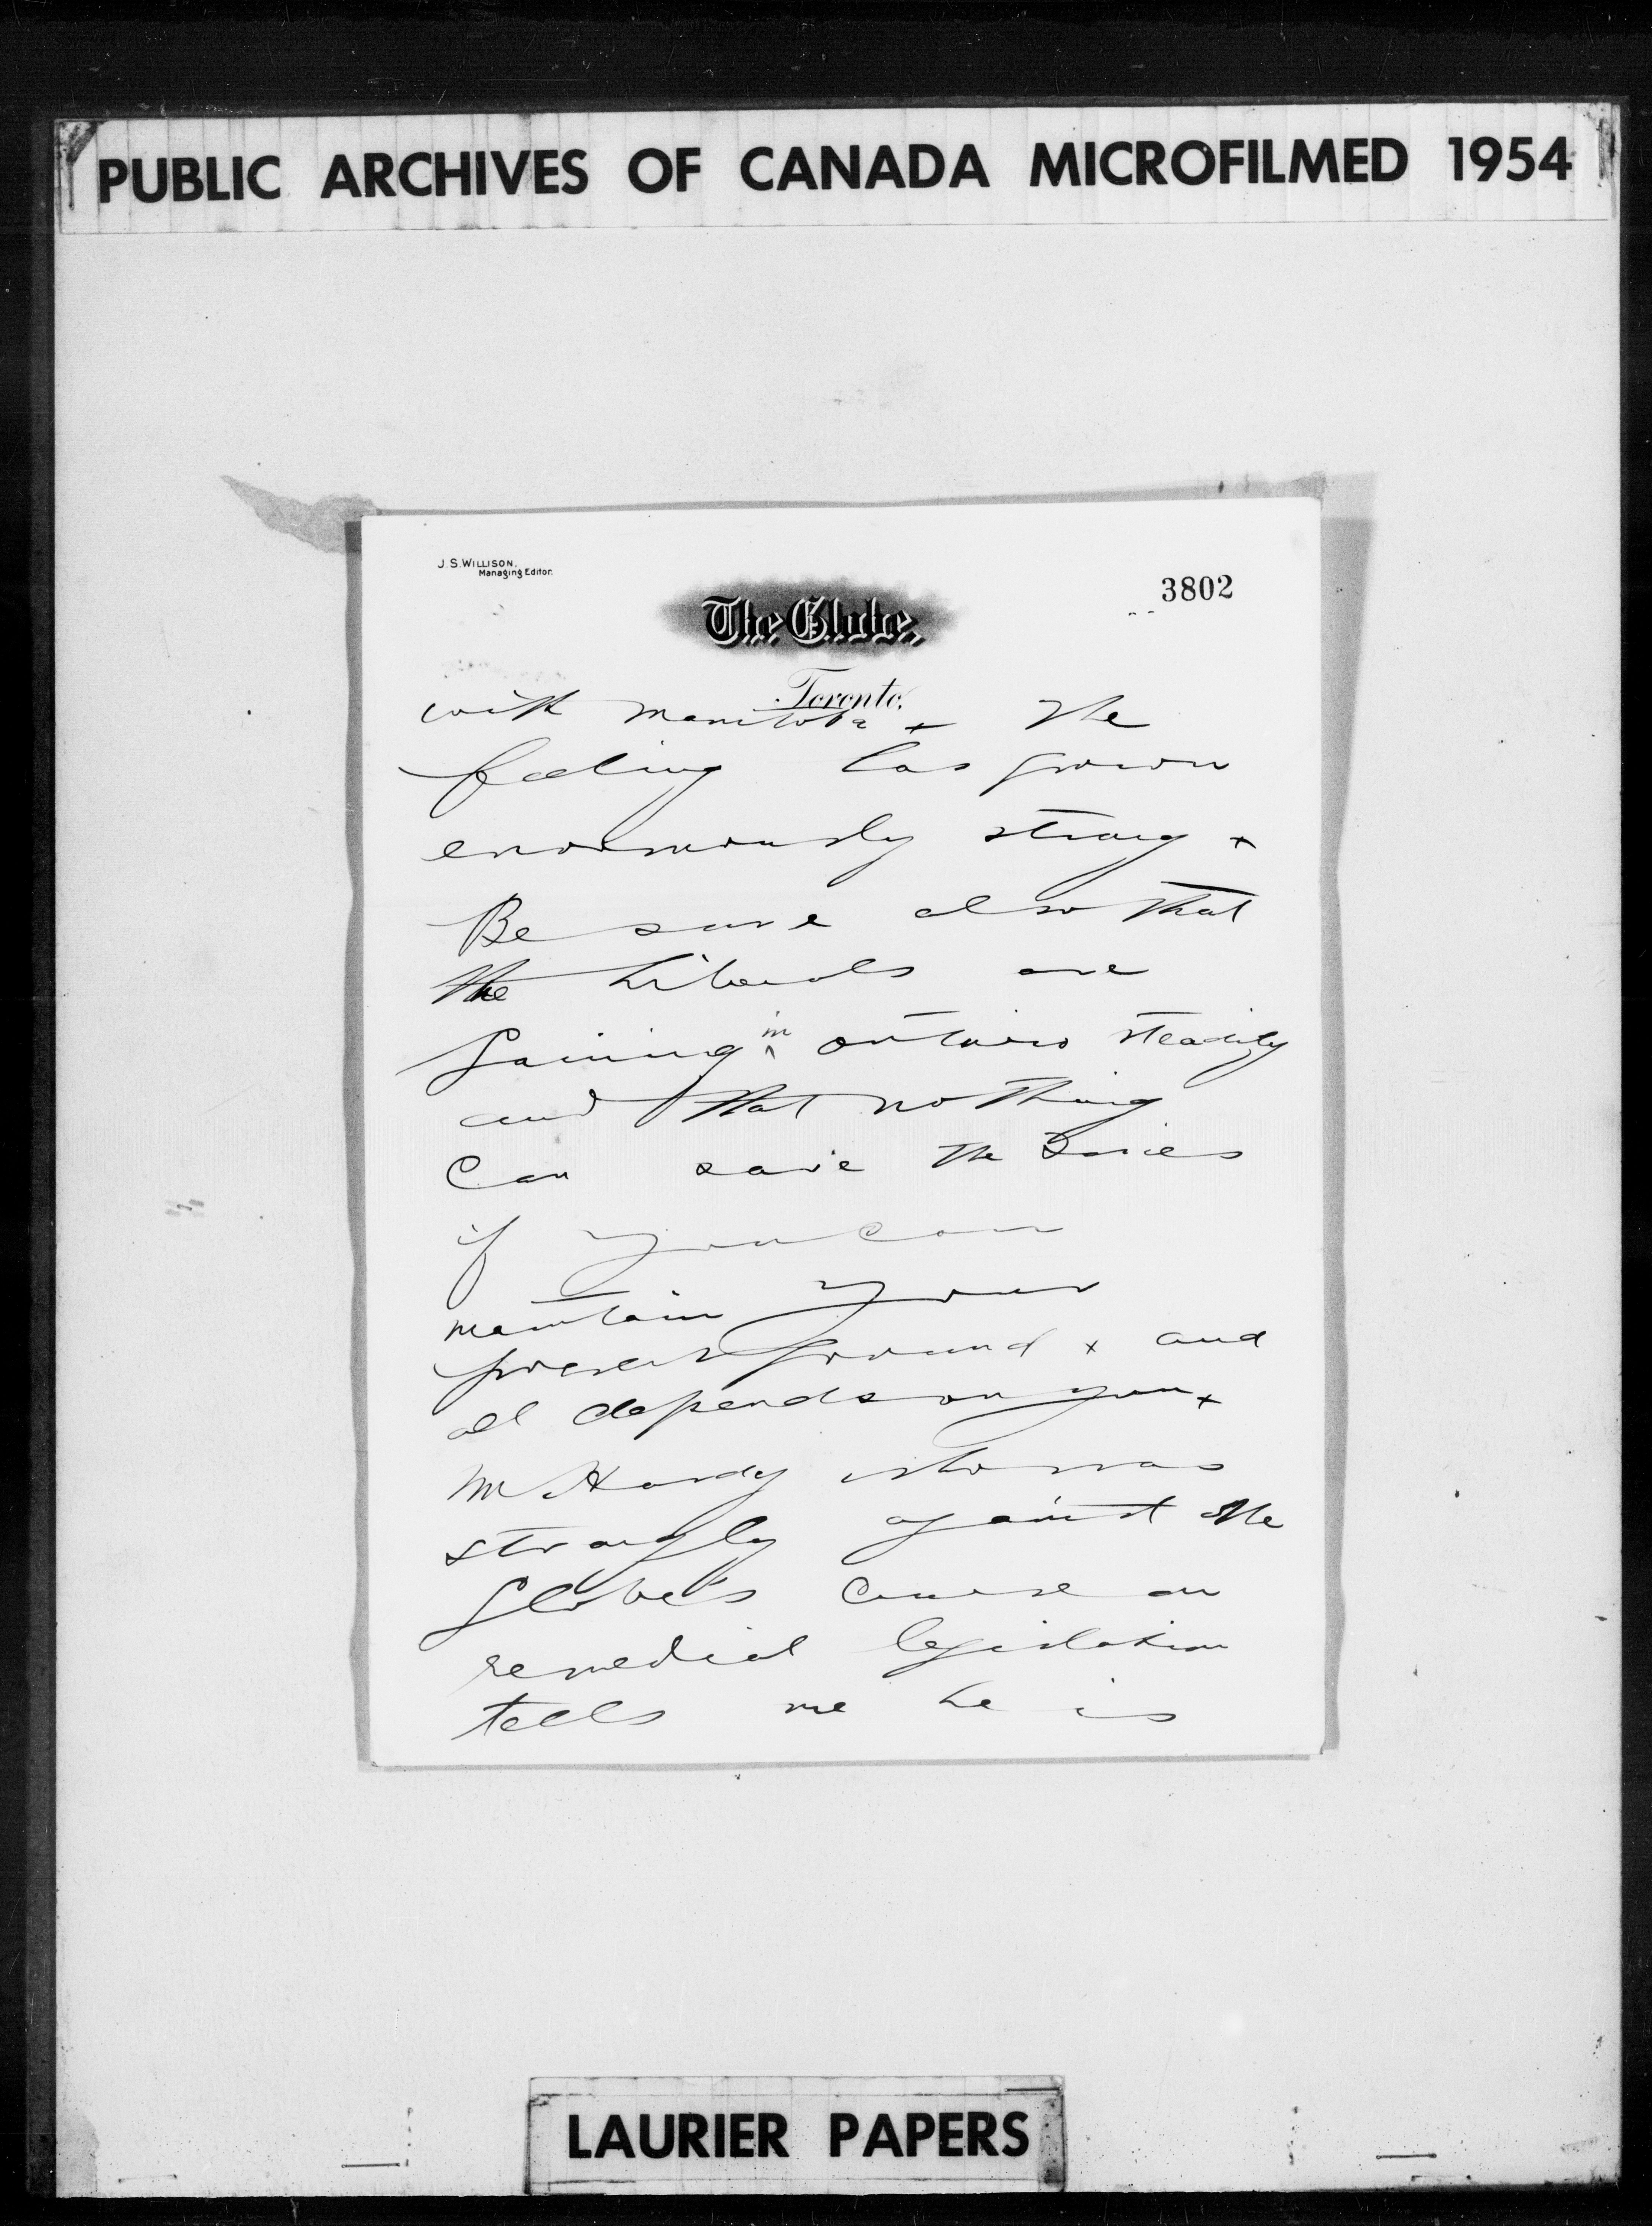 PUBLIC ARCHIVES OF CANADA MICROFILMED 1954
J.S. WILLISON,
Managing Editor.
3802
The Globe,
Toronto,
with Manitoba x The
feeling has grown
enormously strong x
Be sure also that
the Liberals are
gaining in Ontario steadily
and that nothing
can save the Tories
if you can
maintain your
present ground x and
all depends on you x
Mr Hardy who was
strongly against the
Globe's course on
remedial legislation
tells me he is
LAURIER PAPERS